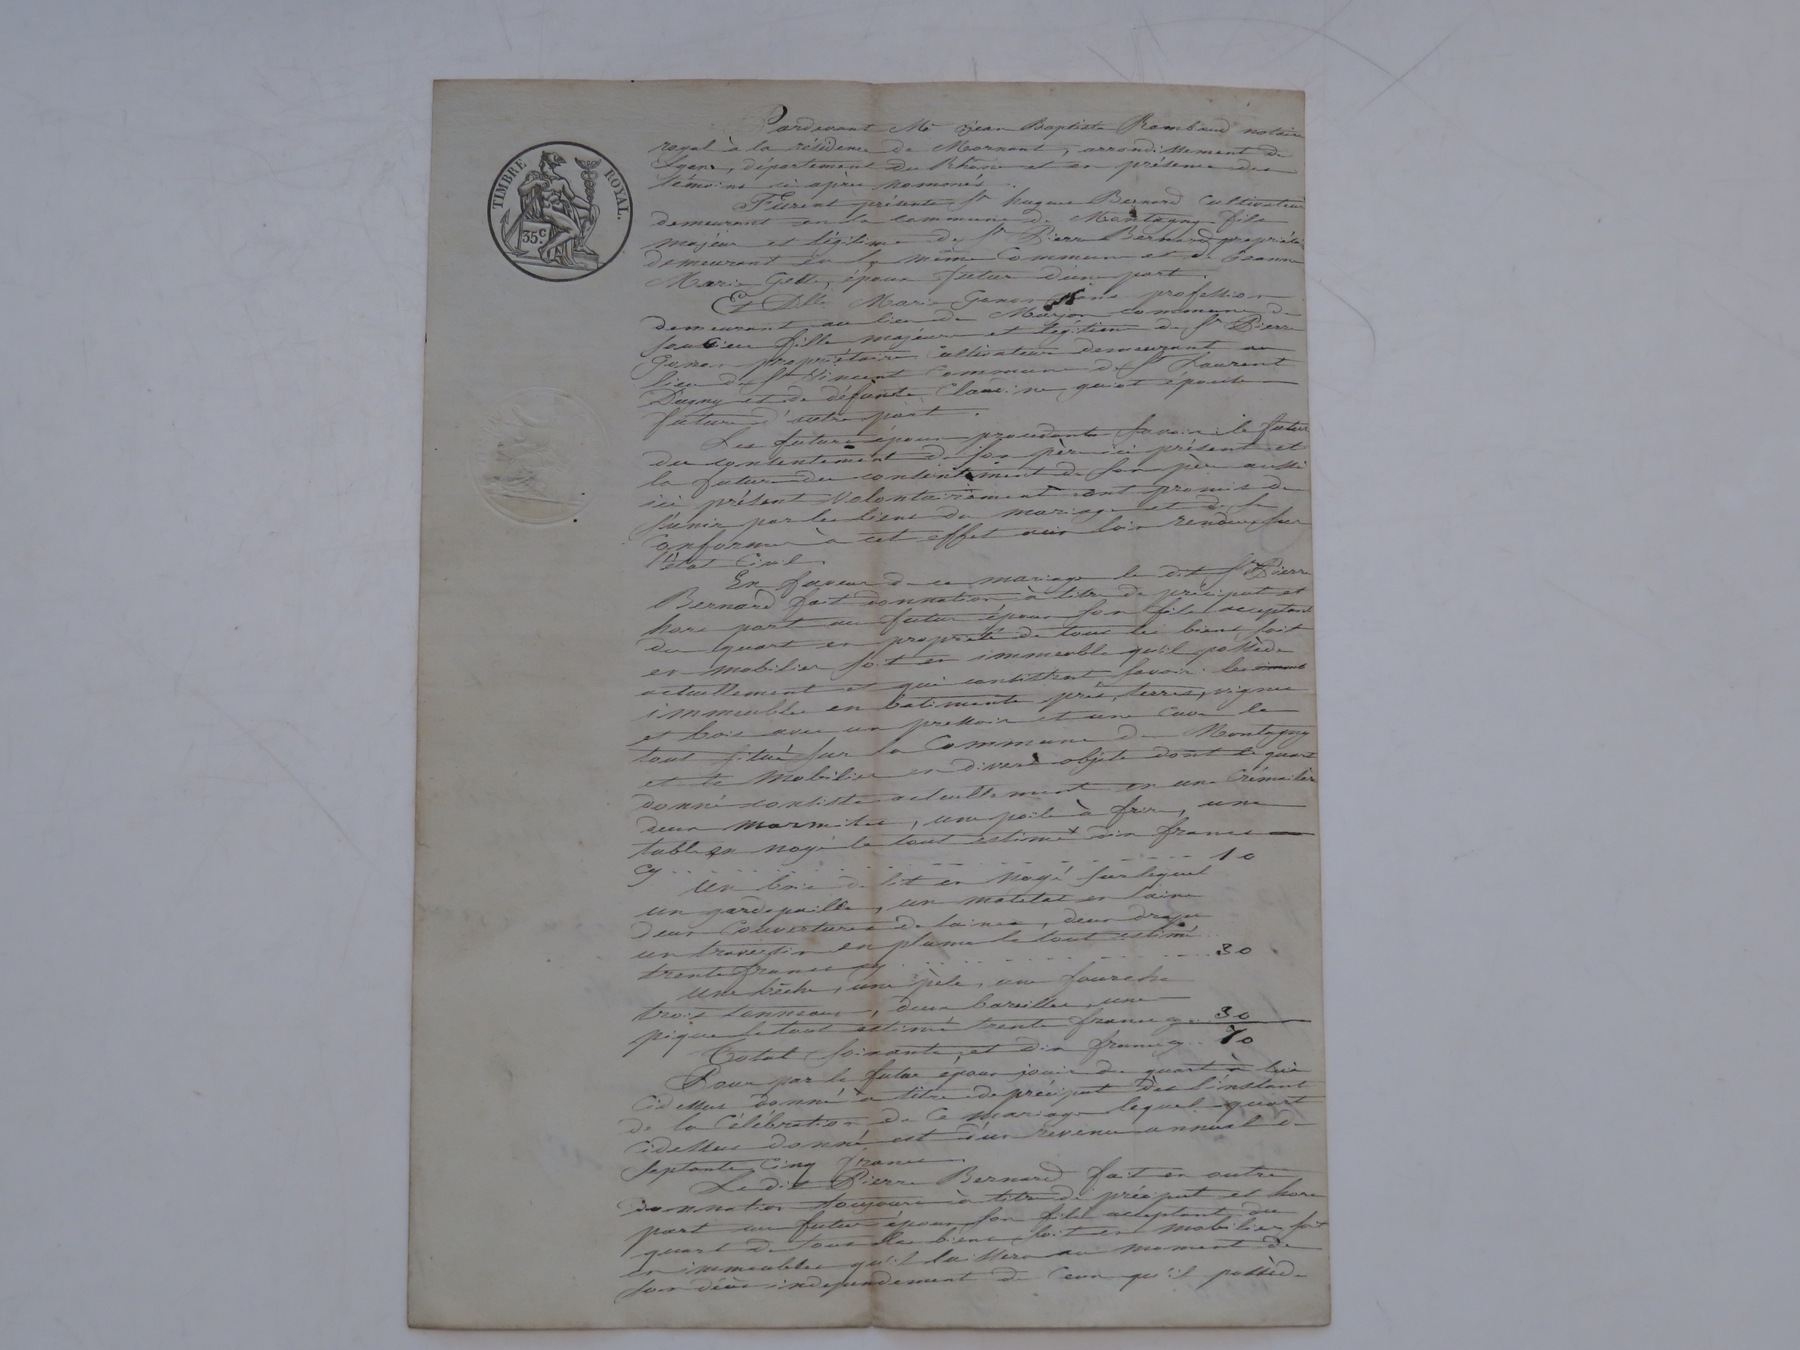 TIMBRE ROYAL.
35.c
Pardevant Me Jean Baptiste Rambaud notaire
royal à la résidence de Mornant, arrondissement de
Lyon, département du Rhône et en présence des
témoins ci après nommés.
Furent présents Sr hugue Bernard Cultivateur
demeurant en la commune de Montagny fils
majeur et légitime de Sr Pierre Bernard propriétaire
demeurant en la même Commune et de Jeanne
Marie Gette, époux futur d'une part.
Et Dlle Marie sans profession
demeurant au lieu de commune de
Soucieu fille majeure et légitime de Sr Pierre
propriétaire Cultivateur demeurant au
lieu de St Vincent Commune de St Laurent
D'agny et de défunte Claudine épouse
future d'autre part.
Les futurs époux procédants savoir le futur
du consentement de son père ici présent et
la future du consentement de son père aussi
ici présent volontairement ont promis de
s'unir par les liens du mariage et de se
conformer à cet effet aux lois rendues sur
l'état Civil.
En faveur de ce mariage le dit Sr Pierre
Bernard fait donnation à titre de préciput et
hors part au futur époux son fils acceptant
du quart en propriété de tous les biens soit
en mobilier soit en immeuble qu'il possède
actuellement et qui consistent savoir les
immeubles en batiments prés, terres, vignes
et bois avec un pressoir et une Cuve le
tout situé sur la Commune de Montagny
et le mobilier en divers objets dont le quart
donné consiste actuellement en une Crémailère
deux marmites, une poile à frire, une
table en noyé le tout estimé dix francs
cy 10
Un bois de lit en noyé sur lequel
un gardepaille, un matelat en laine
deux Couvertures de laines, deux draps
un traversin en plume le tout estimé
trente francs cy 30
Une bêche, une pèle, une fourche
trois tonneaux, deux bareilles, une
pique le tout estimé trente francs cy 30
Total soixante et dix francs cy 70
Pour par le futur époux jouir du quart à lui
cidessus donné à titre de préciput dès l'instant
de la Célébration de Ce mariage lequel quart
cidessus donné est d'un revenu annuel de
septante Cinq francs.
Le dit Pierre Bernard fait en outre
donnation toujours à titre de préciput et hors
part au futur époux son fils acceptant du
quart de tous les biens soit en mobilier soit
en immeubles qu'il laissera au moment de
son décès independement de Ceux qu'il possède